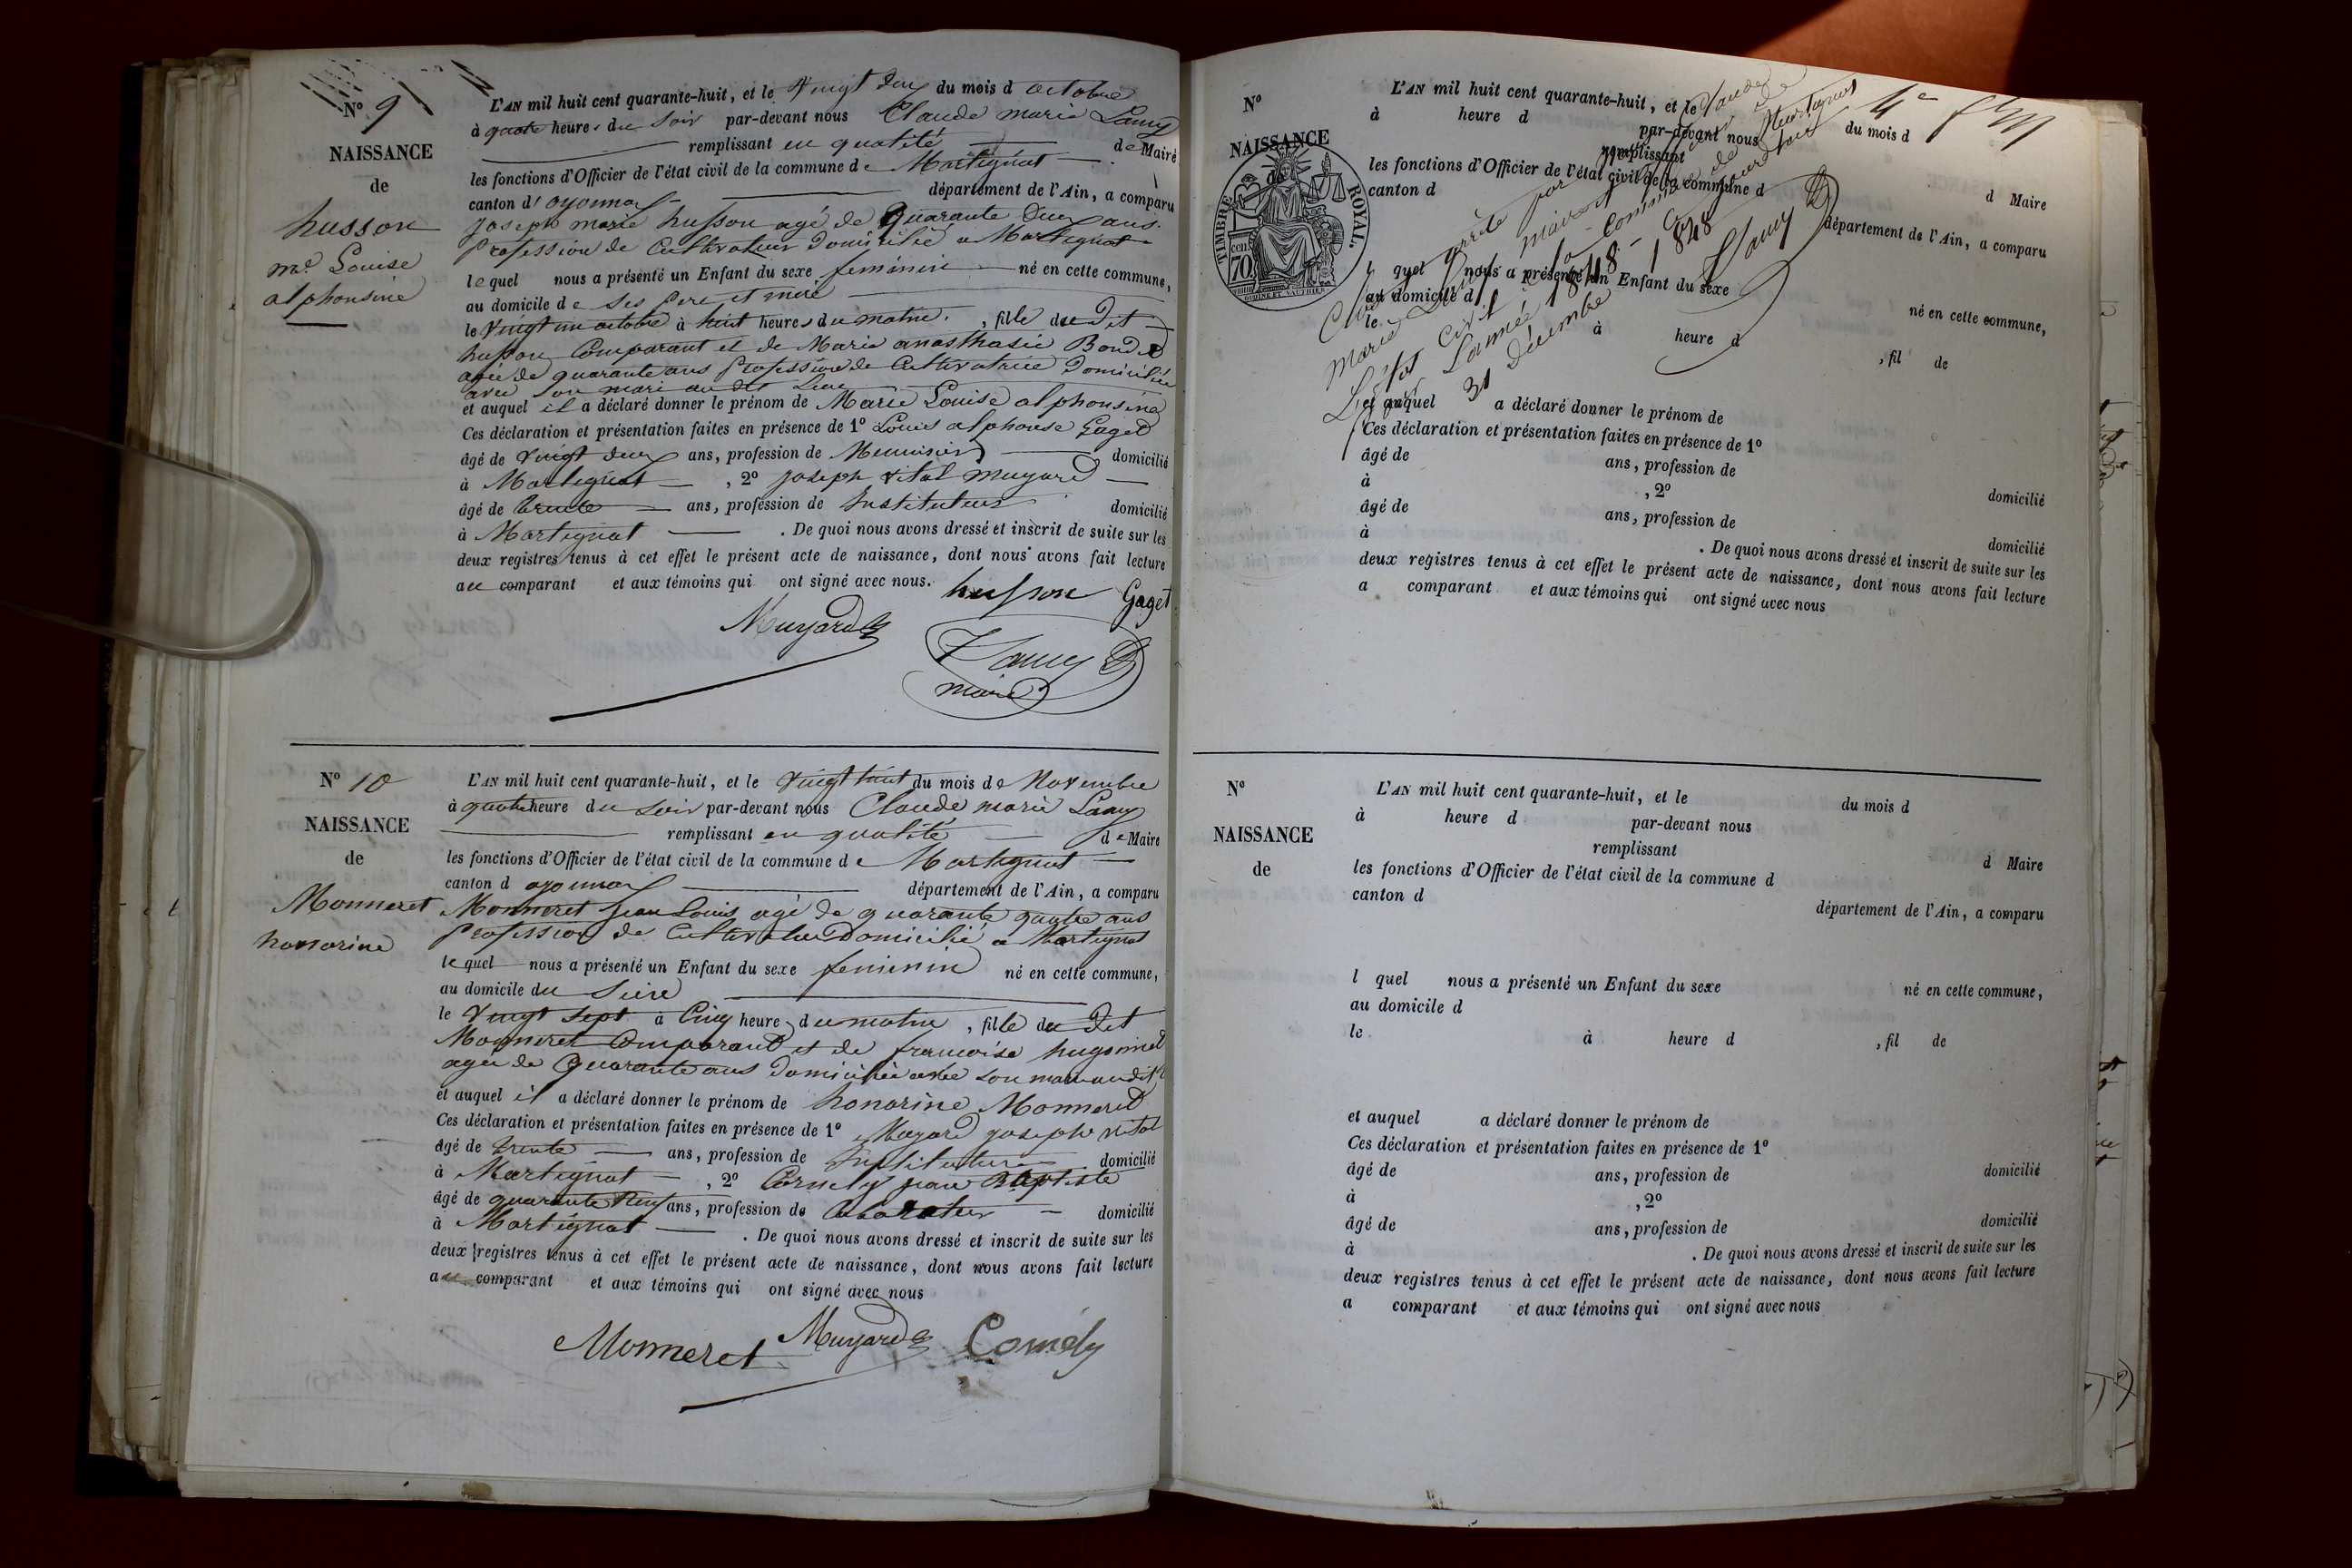 N° 9
NAISSANCE
de
husson
mie Louise
alphonsine
L'AN mil huit cent quarante-huit, et le Vingt deux du mois d octobre
à quatre heures du Soir par-devant nous Claude marie Lamy
remplissant en qualité de Maire
les fonctions d'Officier de l'état civil de la commune de Martignat
canton d'oyonnax département de l'Ain, a comparu
joseph marie husson agé de quarante deux ans
profession de Cultivateur domicilié a Martignat
lequel nous a présenté un Enfant du sexe feminin né en cette commune,
au domicile de ses pere et mere
le Vingt un octobre à huit heures du matin, fille du dit
husson Comparant et de Marie anasthasie
agée de quarante ans profession de Cultivatrice domiciliée
avec son mari au dit Lieu
et auquel il a déclaré donner le prénom de Marie Louise alphonsine
Ces déclaration et présentation faites en présence de 1° Louis alphonse Gaget
âgé de Vingt deux ans, profession de Menuisier domicilié
à Martignat, 2° joseph vital muyard
âgé de trente ans, profession de Instituteur domicilié
à Martignat. De quoi nous avons dressé et inscrit de suite sur les
deux registres tenus à cet effet le présent acte de naissance, dont nous avons fait lecture
au comparant et aux témoins qui ont signé avec nous. husson Gaget
Muyard
Lamy
maire
N° 10
NAISSANCE
de
Monneret
honnorine
L'AN mil huit cent quarante-huit, et le Vingt huit du mois de Novembre
à quatre heure du soir par-devant nous Claude marie Lamy
remplissant en qualité de Maire
les fonctions d'Officier de l'état civil de la commune de Martignat
canton d oyonnax département de l'Ain, a comparu
Monneret jean Louis agé de quarante quatre ans
profession de Cultivateur domicilié a Martignat
lequel nous a présenté un Enfant du sexe feminin né en cette commune,
au domicile du
le Vingt sept à Cinq heure du matin, fille du dit
Monneret Comparant et de francoise hugonnet
agée de quarante ans domiciliée avec son mari au dit
et auquel il a déclaré donner le prénom de honorine Monneret
Ces déclaration et présentation faites en présence de 1° Muyard joseph vital
âgé de trente ans, profession de Instituteur domicilié
à Martignat, 2° Cornely jean Baptiste
âgé de quarante neuf ans, profession de domicilié
à Martignat. De quoi nous avons dressé et inscrit de suite sur les
deux registres tenus à cet effet le présent acte de naissance, dont nous avons fait lecture
au comparant et aux témoins qui ont signé avec nous
Monneret Muyard Cornély
4e
N°
NAISSANCE
de
TIMBRE ROYAL.
70 cen
L'AN mil huit cent quarante-huit, et le du mois d
à heure d par-devant nous
remplissant d Maire
les fonctions d'Officier de l'état civil de la commune d
canton d département de l'Ain, a comparu
l quel nous a présenté un Enfant du sexe né en cette commune,
au domicile d
le à heure d, fil de
et auquel a déclaré donner le prénom de
Ces déclaration et présentation faites en présence de 1°
âgé de ans, profession de domicilié
à, 2°
âgé de ans, profession de domicilié
à. De quoi nous avons dressé et inscrit de suite sur les
deux registres tenus à cet effet le présent acte de naissance, dont nous avons fait lecture
a comparant et aux témoins qui ont signé avec nous
Clos arrêté par Claude
Marie Lamy maire
L'état civil de la Commune de Martignat
pour L'année 1848
31 décembre 1848
Lamy
N°
NAISSANCE
de
L'AN mil huit cent quarante-huit, et le du mois d
à heure d par-devant nous
remplissant d Maire
les fonctions d'Officier de l'état civil de la commune d
canton d département de l'Ain, a comparu
l quel nous a présenté un Enfant du sexe né en cette commune,
au domicile d
le à heure d, fil de
et auquel a déclaré donner le prénom de
Ces déclaration et présentation faites en présence de 1°
âgé de ans, profession de domicilié
à, 2°
âgé de ans, profession de domicilié
à. De quoi nous avons dressé et inscrit de suite sur les
deux registres tenus à cet effet le présent acte de naissance, dont nous avons fait lecture
a comparant et aux témoins qui ont signé avec nous